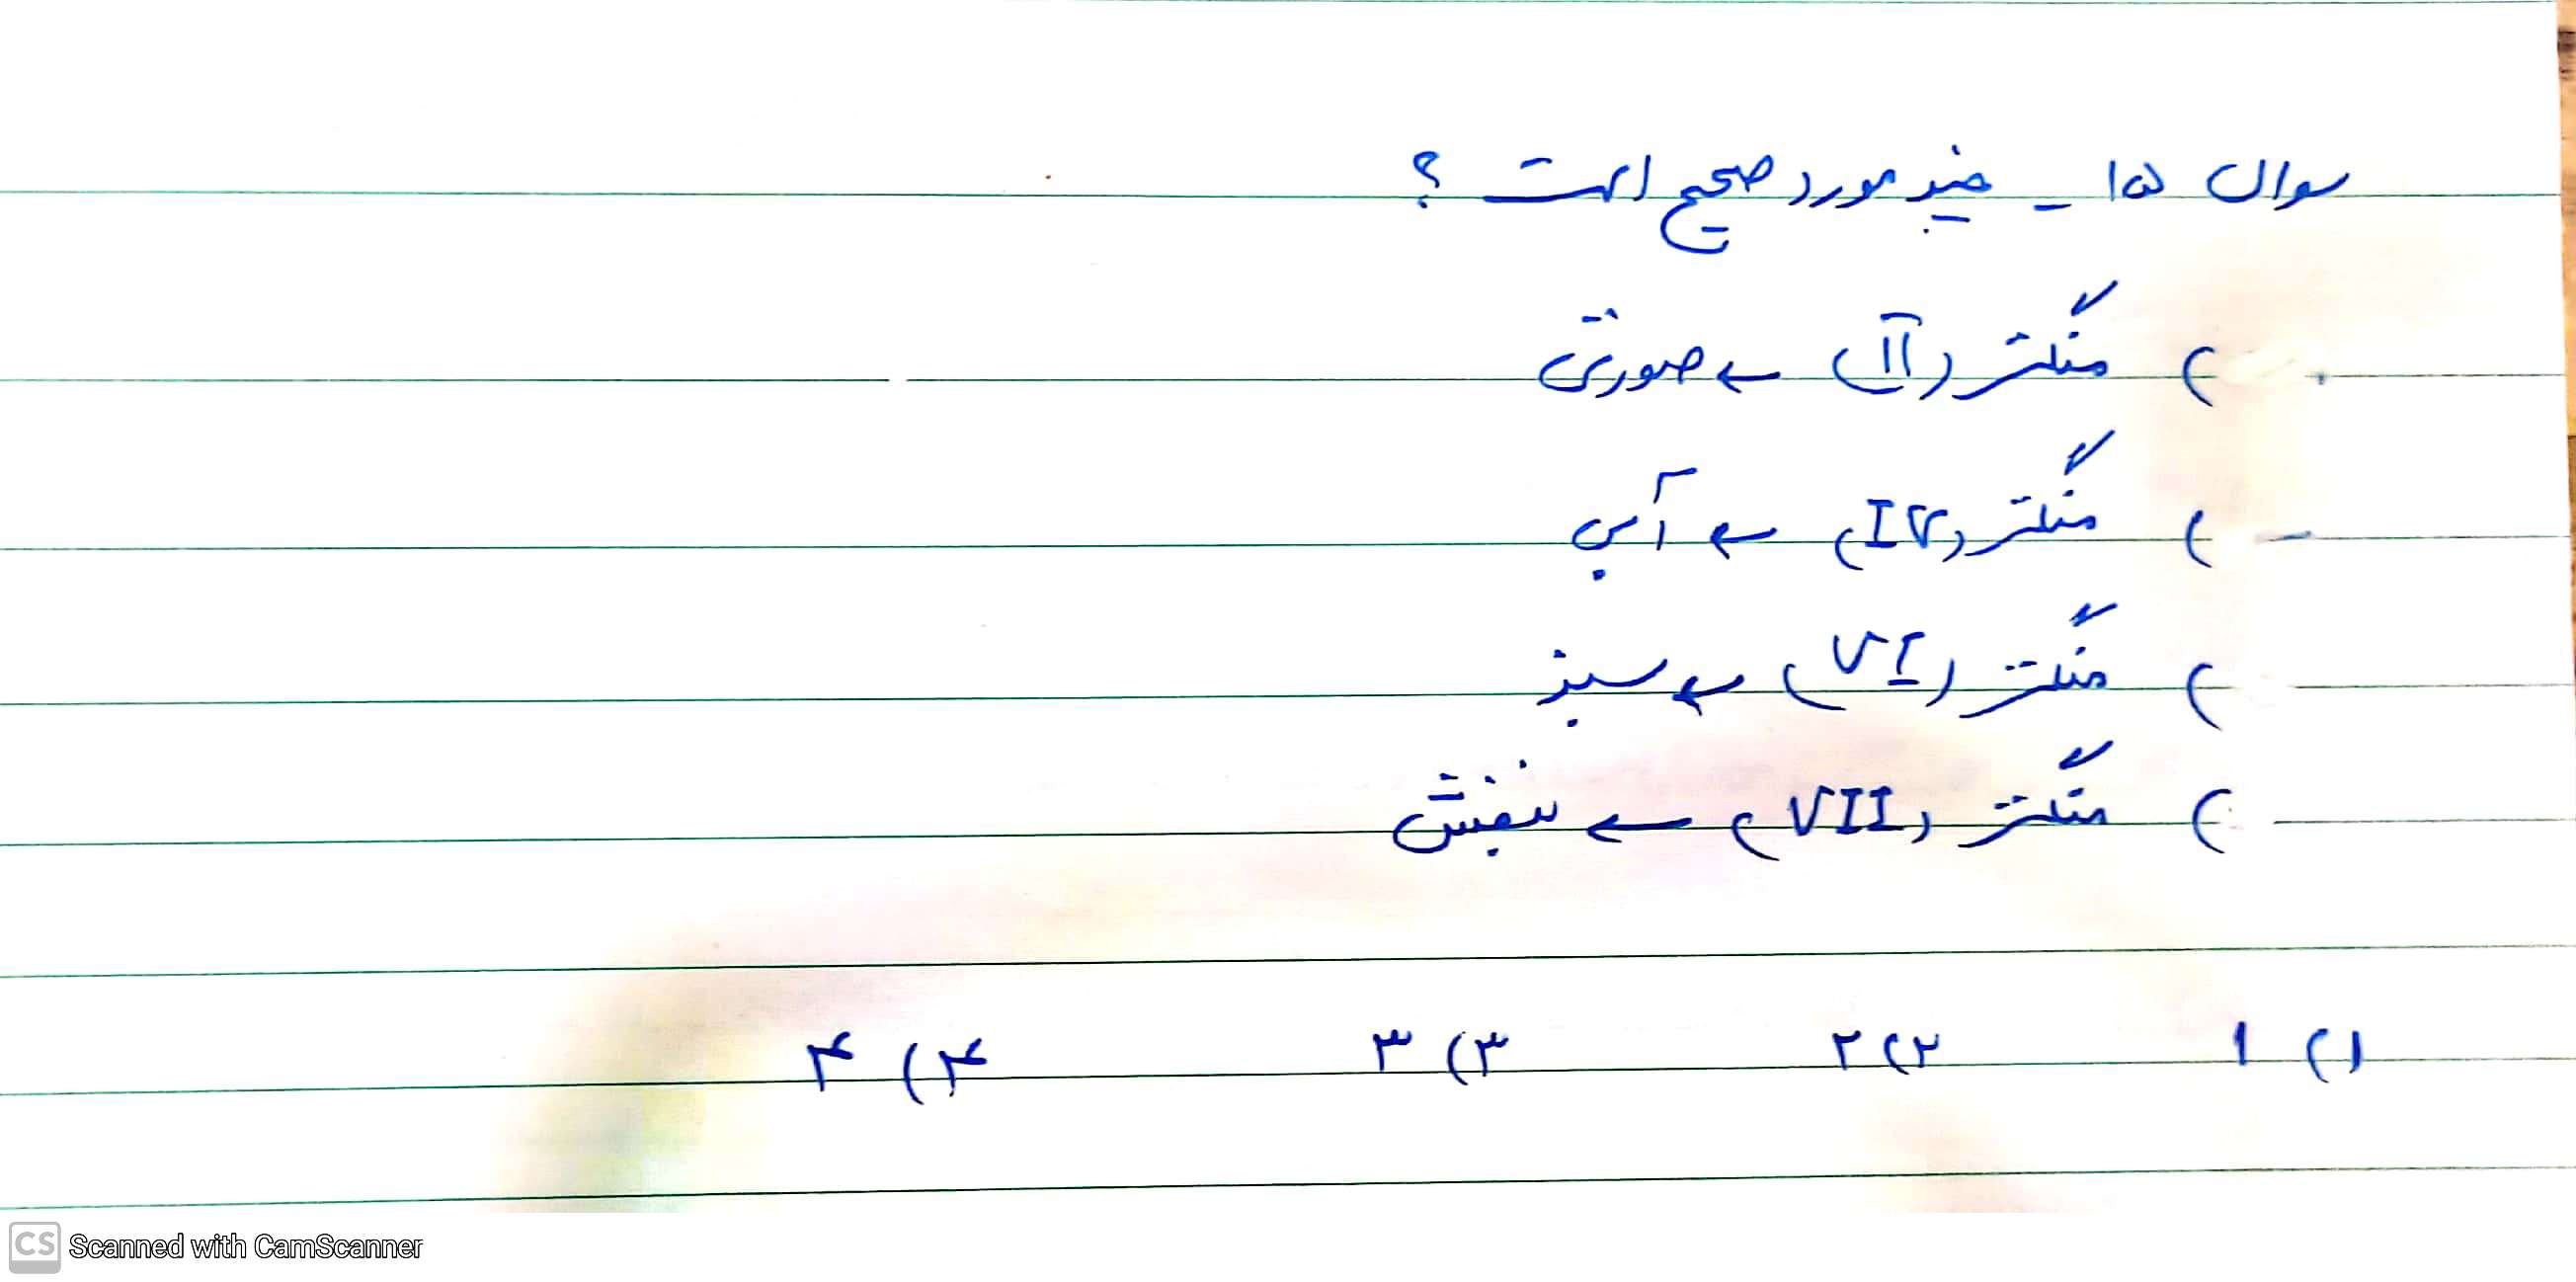 سوال ۱۵ - چند مورد صحیح است ؟
) منگنز (II) ← صورتی
) منگنز (IV) ← آبی
) منگنز (VI) ← سبز
) منگنز (VII) ← بنفش
۱) ۱ ۲) ۲ ۳) ۳ ۴) ۴
CS Scanned with CamScanner